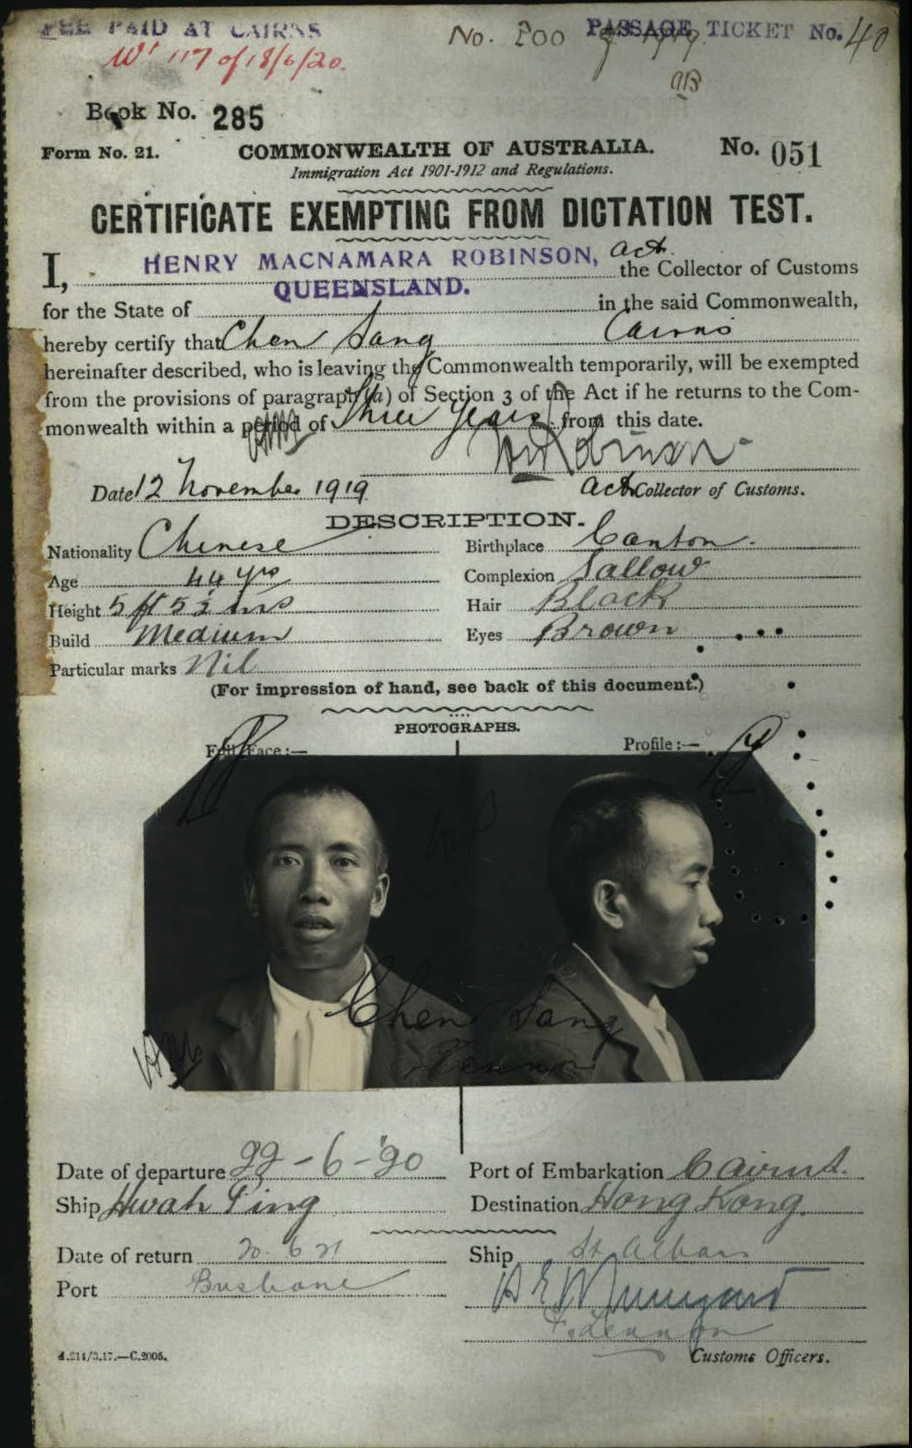 FEE PAID AT CAIRNS
No. 200
PASSAGE TICKET No. 40
117 of 18/6/20.
Book No. 285
Form No. 21.
COMMONWEALTH OF AUSTRALIA.
No. 051
Immigration Act 1901-1912 and Regulations.
CERTIFICATE EXEMPTING FROM DICTATION TEST.
I, HENRY MACNAMARA ROBINSON, act. the Collector of Customs
for the State of QUEENSLAND. in the said Commonwealth,
hereby certify that Chen Sang Cairns
hereinafter described, who is leaving the Commonwealth temporarily, will be exempted
from the provisions of paragraph (a) of Section 3 of the Act if he returns to the Com-
monwealth within a period of three years from this date.
HMRobinson
Date 12 November 1919
act Collector of Customs.
DESCRIPTION.
Nationality Chinese
Birthplace Canton.
Age 44 yrs
Complexion Sallow
Height 5 ft 5½ ins
Hair Black
Build Medium
Eyes Brown
Particular marks Nil
(For impression of hand, see back of this document.)
PHOTOGRAPHS.
Full Face:—
Profile:—
Chen Sang
Date of departure 22-6-'20
Port of Embarkation Cairns.
Ship Hwah Ping
Destination Hong Kong.
Date of return 20.6.21
Ship St Albans
Port Brisbane
Customs Officers.